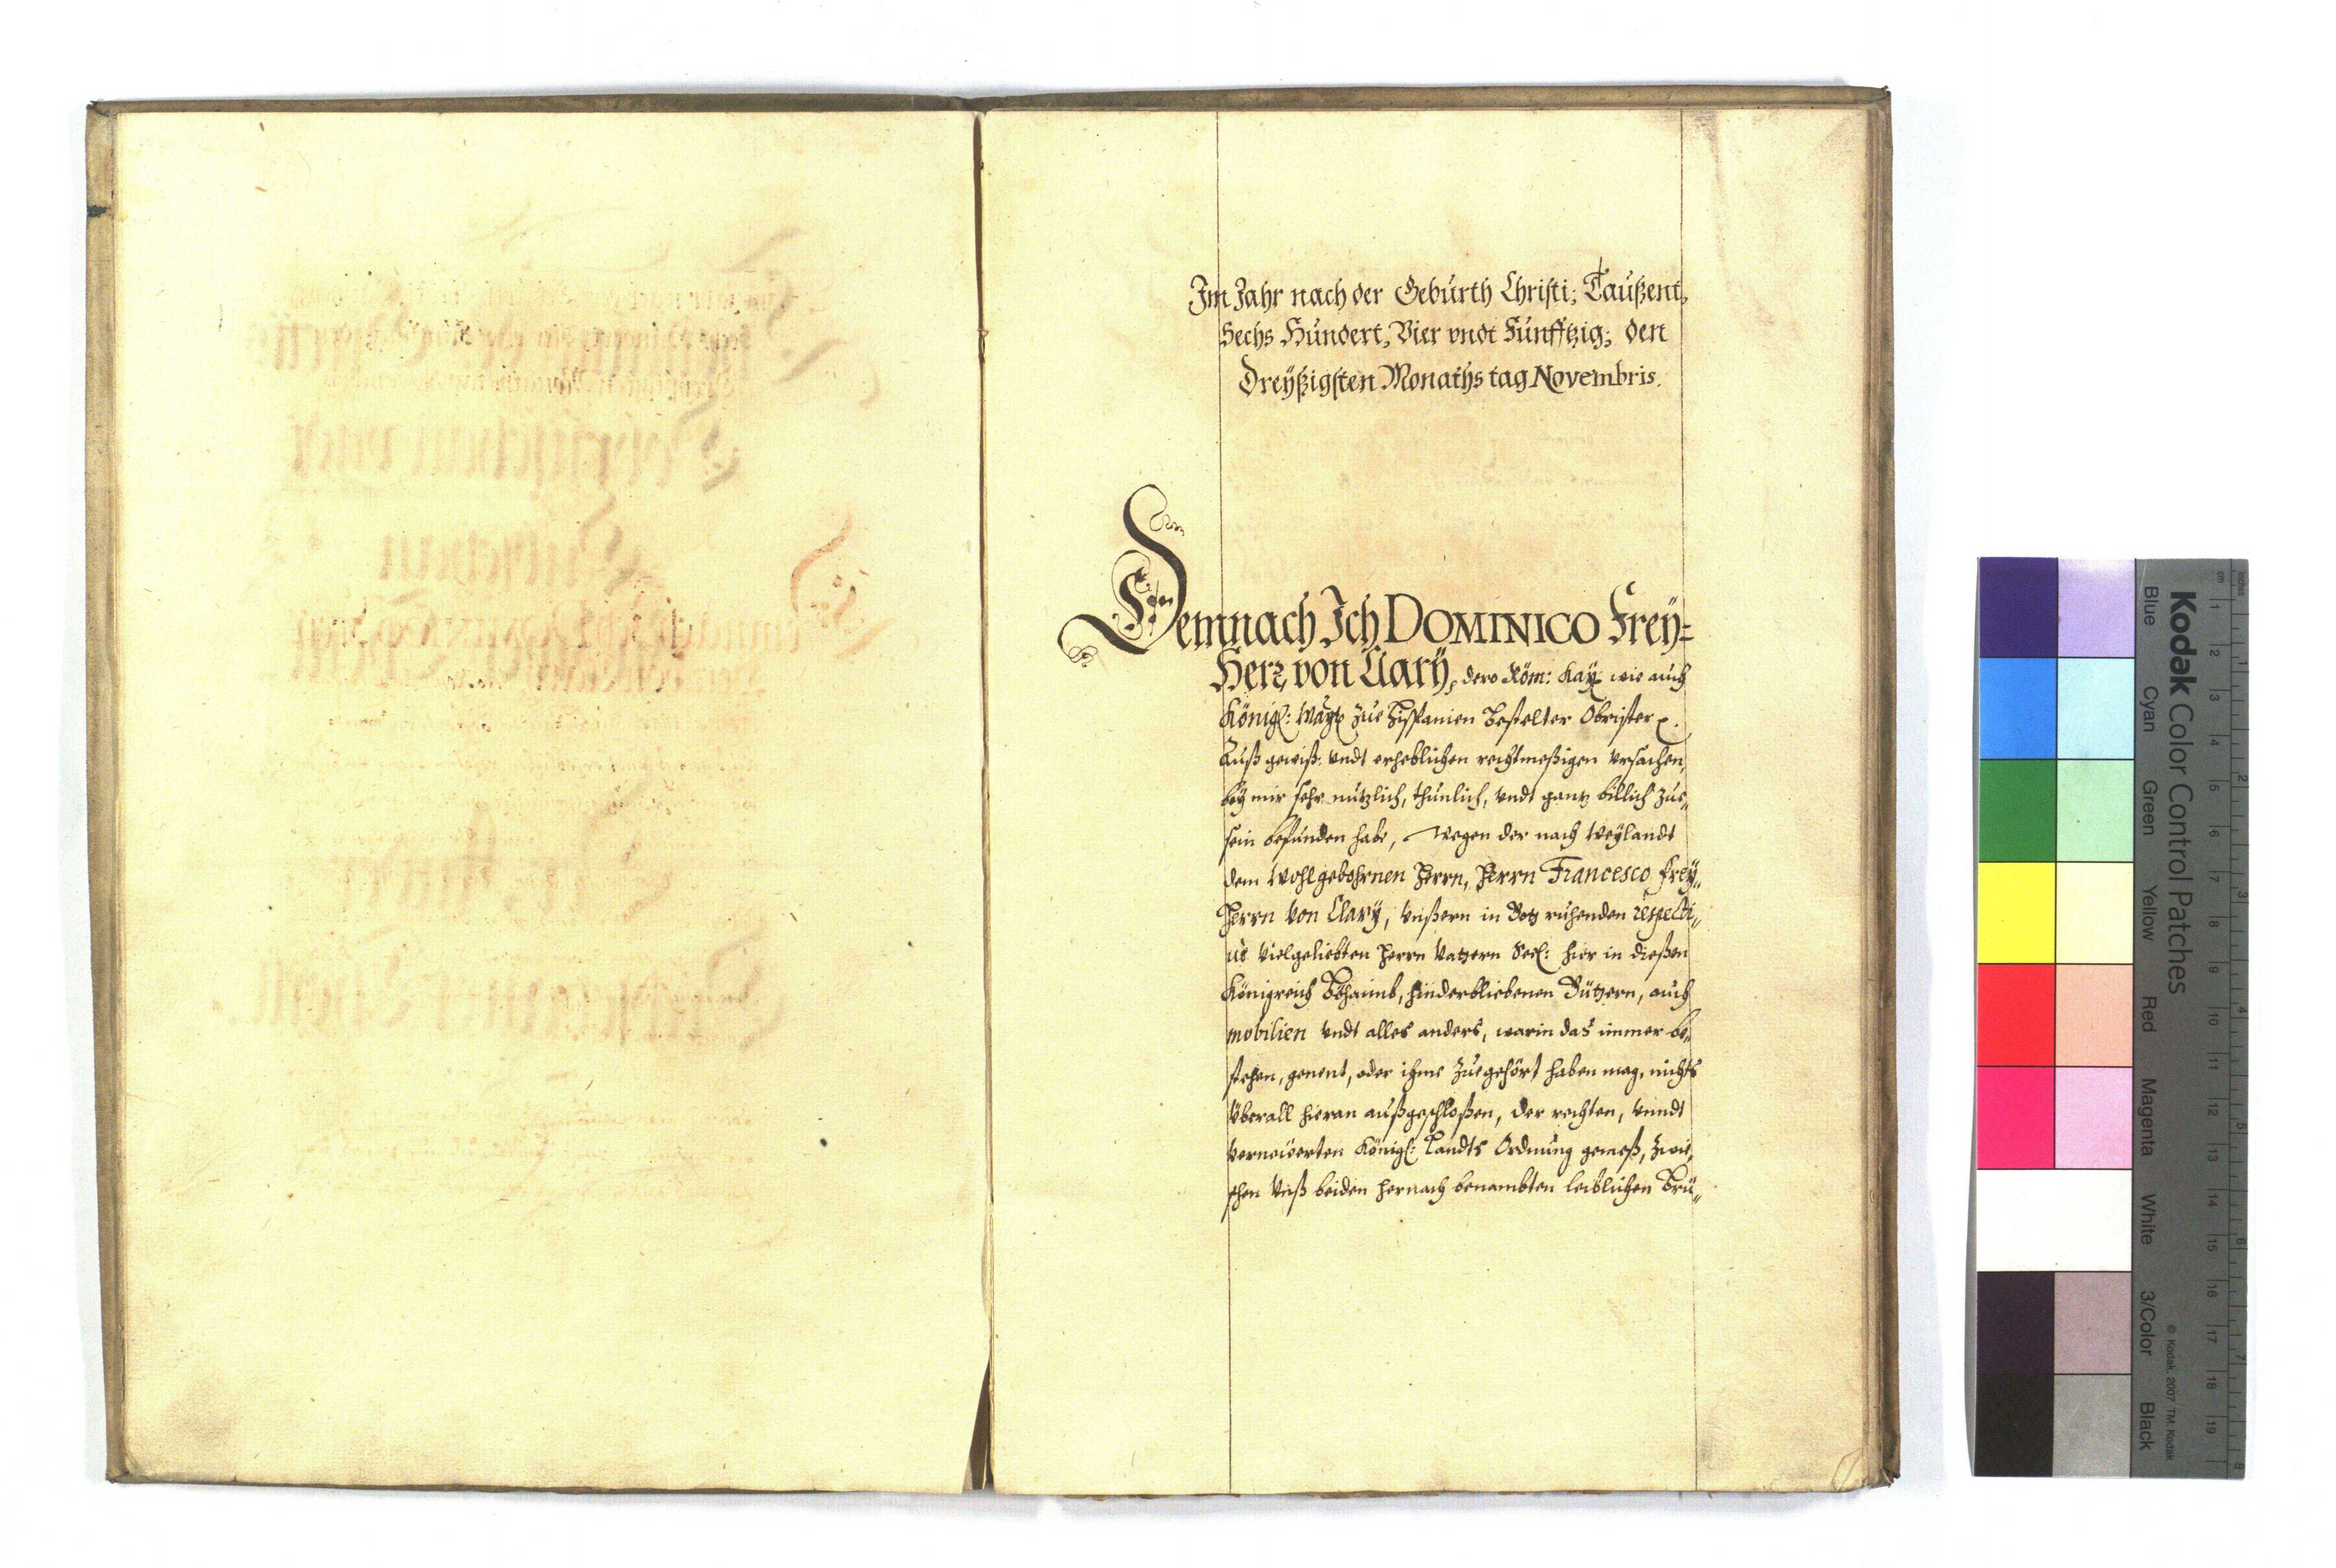 Im Jahr nach der Gebürth Christi; Taüßent,
Sechs Hündert, Vier vndt Fünfftzig; den
Dreÿßigsten Monaths tag Novembris.
Demnach Ich DOMINICO Freÿ=
Herr von Clarÿ, dero Röm: Kaÿ: wie auch
Königl: Maÿt: züe Hispanien Bestelter Obrister
Auß gewiß: vndt erheblichen rechtmeßigen vrsachen,
beÿ mir sehr nützlich, thünlich, vndt gantz billich züe„
sein befünden habe, wegen der nach Weÿlandt
dem Wohlgebohrnen Herrn, Herrn Francesco Freÿ„
Herrn von Clarÿ, vnßern in Gott ruhenden respecti„
ue vielgeliebten Herrn Vattern Seel: hier in dießen
Königreich Böhaimb, hinderbliebenen Güttern, auch
mobilien vndt alles anders, warin das immer be„
stehen, genent, oder ihme züegehört haben mag, nichts
überall hieran außgeschloßen, der rechten, vnndt
verneüerten Königl: Landts Ordnüng gemeß, zwi„
schen vnß beiden hernach benambten leiblichen Brü„
Kodak Color Control Patches
© Kodak, 2007 TM: Kodak
Blue Cyan Green Yellow Red Magenta White 3/Color Black
inches 1 2 3 4 5 6 7 8
cm 1 2 3 4 5 6 7 8 9 10 11 12 13 14 15 16 17 18 19